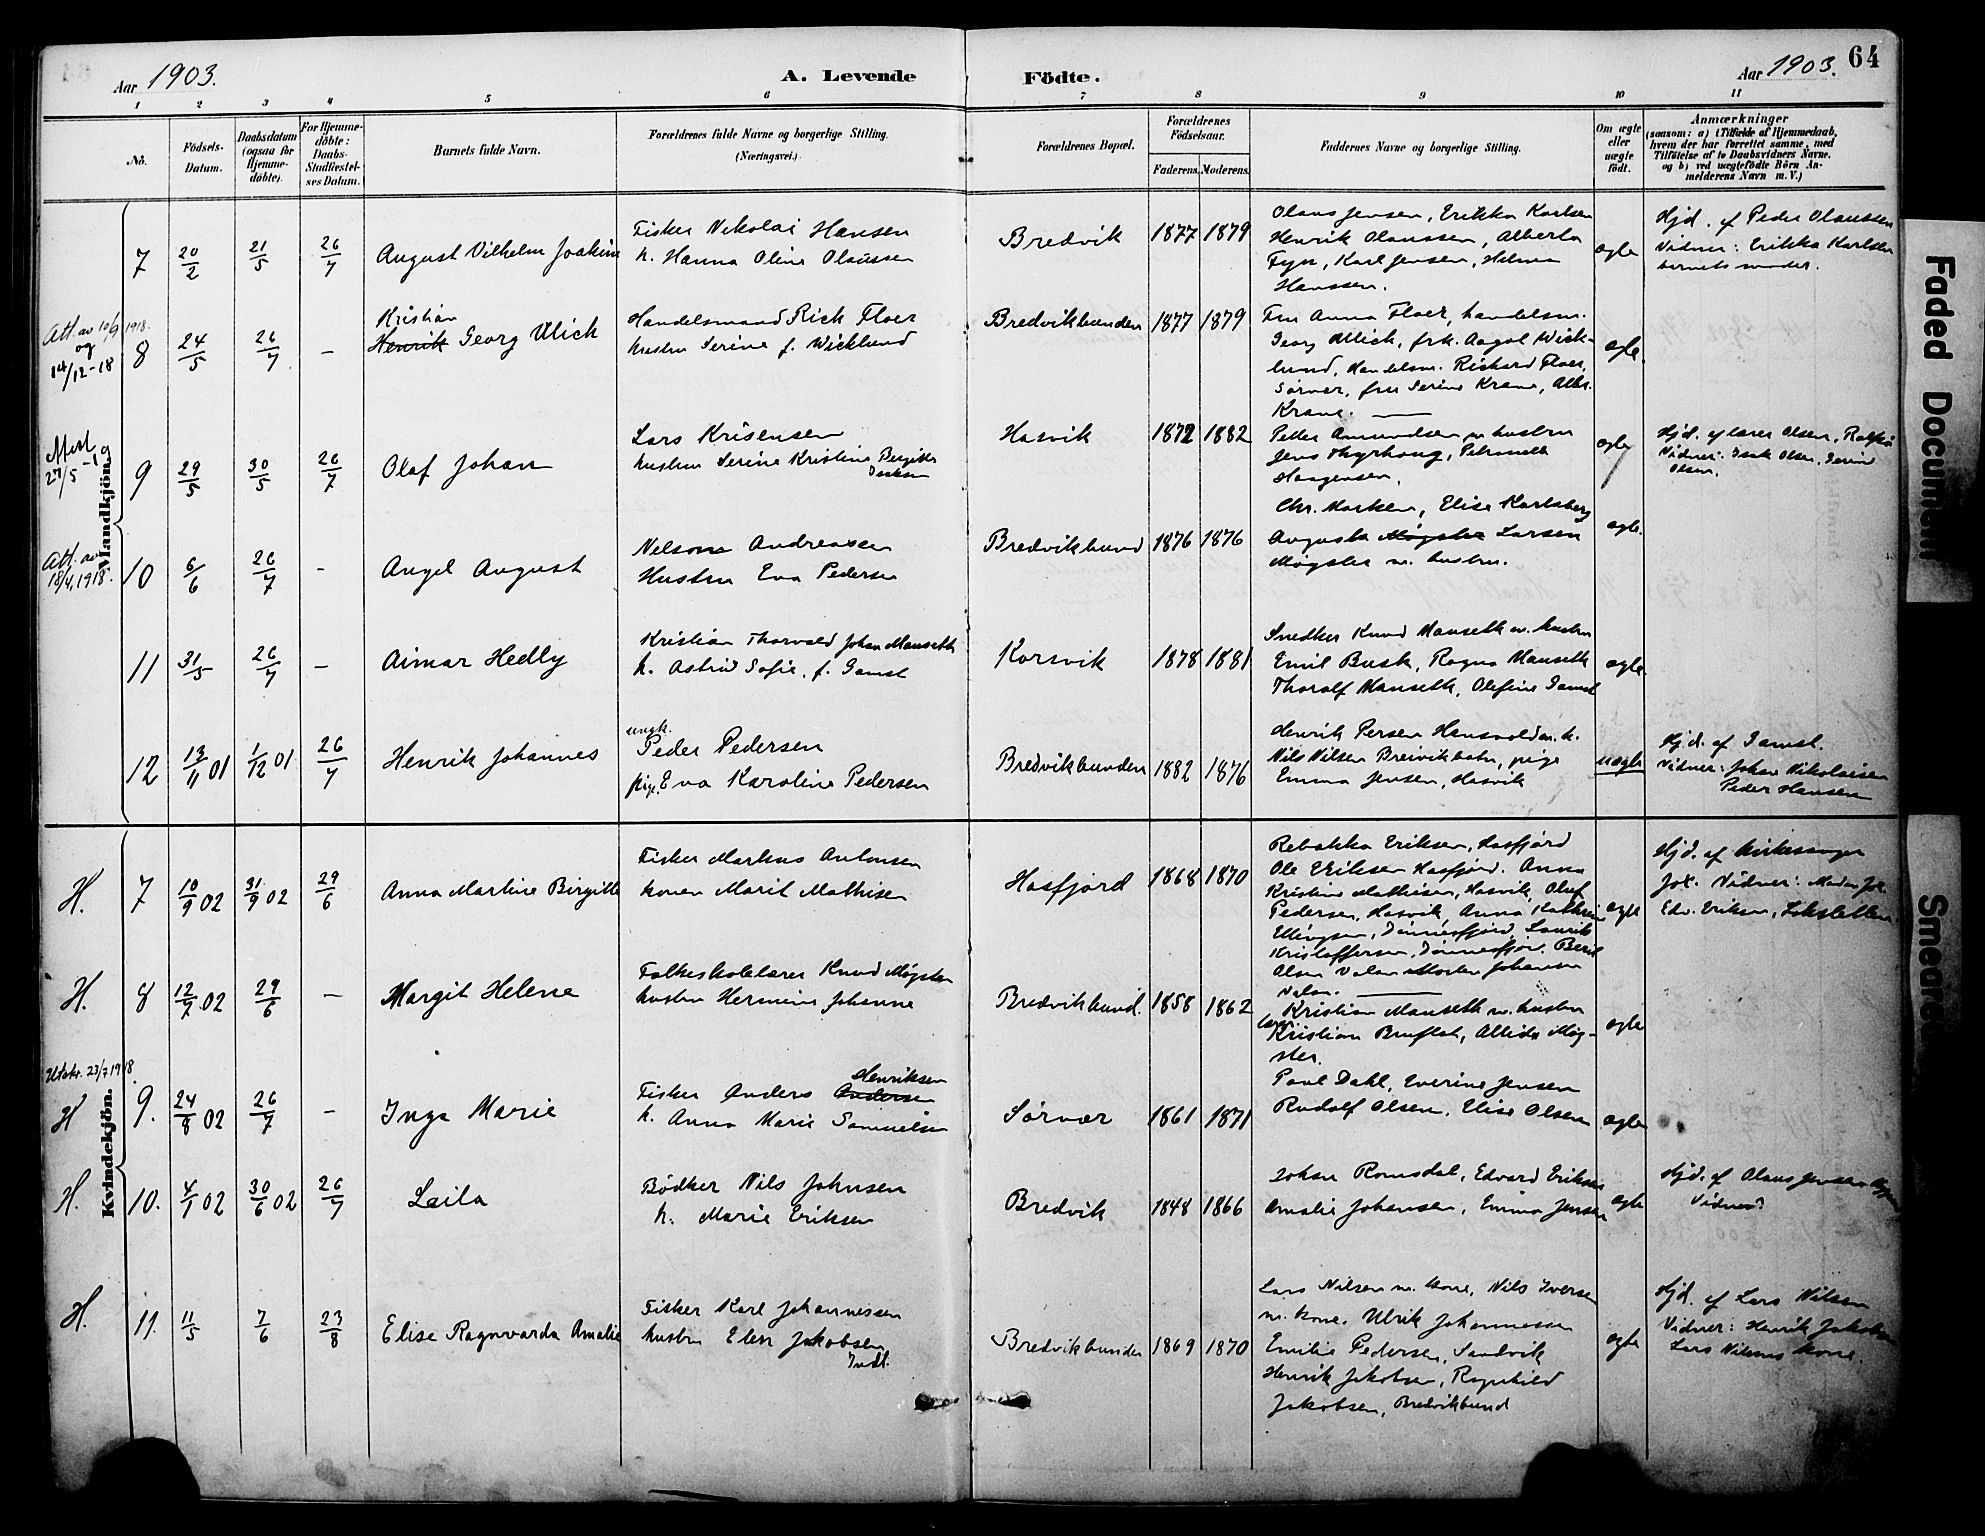 Aar 1903.
A. Levende
Födte.
Aar 1903.
64
1 2 3 4 5 6 7 8 9 10 11
No.
Födsels-
Datum.
Daabsdatum
(ogsaa for
Hjemme-
døbte).
For Hjemme-
døbte:
Daabs-
Stadfæstel-
ses Datum.
Barnets fulde Navn.
Forældrenes fulde Navne og borgerlige Stilling.
(Næringsvei.)
Forældrenes Bopæl.
Forældrenes
Födselsaar.
Faderens.
Moderens.
Faddernes Navne og borgerlige Stilling.
Om ægte
eller
uægte
födt.
Anmærkninger
(saasom: a) i Tilfælde af Hjemmedaab,
hvem der har forrettet samme, med
Tilföielse af to Daabsvidners Navne,
og b) ved uægtefödte Börn An-
melderens Navn m. V.)
Mandkjön.
7 20/2 21/5 26/7 August Vilhelm Joakim
Fisker Nikolai Hansen
h. Hanna Oline Olaussen
Bredvik 1877 1879
Olaus Jensen, Erikka Karlsen
Henrik Olaussen, Alberta
Fyn, Karl Jensen, Hilma
Hanssen.
ægte
Hjd. af Peder Olaussen
Vidner: Erikka Karlsen
barnets moder.
Att. av 10/9 1918.
og
14/12-18
8 24/5 26/7 –
Kristian
Henrik Georg Ulich
Handelsmand Rich Floer
hustru Serine f. Wicklund
Bredvikbunden 1877 1879
Fru Anna Floer, handelsm.
Georg Ulich, frk. Aagot Wick-
lund, Handelsm. Richard Floer,
Sørvær, fru Serine Krane, Alb.
Krane.
ægte.
27/5-19
9 29/5 30/5 26/7 Olaf Johan
Lars Krisensen
hustru Serine Kristine Bergitte
Hasvik 1872 1882
Petter Amundsen m hustru
Jens Thyrhoug, Petronelle
Haagensen.
ægte
Hjd. af lærer Olsen,
Vidner: Isak Olsen,
Olsen.
Att. av
18/4 1918.
10 6/6 26/7 – Angel August
Nelson Andreassen
Hustru Eva Pedersen
Bredvikbund 1876 1876
Chr. Marken, Elise Karlsberg
Augusta Møgster Larsen
Møgster m. hustru.
ægte.
11 31/5 26/7 – Aimar Hedly
Kristian Thorvald Johan Manseth
h. Astrid Sofie, f. Gamst
Korsvik 1878 1881
Snedker Knud Manseth m. hustru
Emil Busk, Ragna Manseth
Thoralf Manseth, Olefine Gamst
ægte.
12 13/11 01 1/12 01 26/7 Henrik Johannes
ungk.
Peder Pedersen
pige, Eva Karoline Pedersen
Bredvikbunden 1882 1876
Henrik Persen m. h.
Nils Nilsen Breivikbotn, pige
Emma Jensen, Hasvik
uægte
Hjd. af Gamst.
Vidner: Johan Nikolaisen
Peder Hansen
Kvindekjön.
H. 7 10/9 02 31/9 02 29/6 Anna Martine Birgitte
Fisker Markus Antonsen
konen Marit Mathisen
Hasfjord 1868 1870
Rebekka Eriksen, Hasfjord
Ole Eriksen Hasfjord. Anna
Kristine Mathisen, Hasvik, Olaf
Pedersen, Hasvik, Anna Kathrine
Ellingsen, Dønnesfjord, Laurits
Kristoffersen, Dønnesfjor. Berit
Olsen Valan Morten Johansen
Valan.
ægte
Hjd. af kirkesanger
Joh. Vidner: Joh.
Edv. Eriksen,
H. 8 12/7 02 29/6 – Margit Helene
Folkeskolelærer Knud Møgster
hustru Hermine Johanne
Bredvikbund. 1858 1862
Kristian Manseth m. hustru
Kristian Bruflot, Alfhilde Møg-
ster.
ægte
Utskr. 23/7 1918.
H 9. 24/8 02 26/7 – Inga Marie
Henriksen
Fisker Anders Andersen
h. Anna Marie Samuelsen
Sørvær 1861 1871
Paul Dahl, Everine Jensen
Rudolf Olsen, Elise Olsen
ægte
H. 10. 4/1 02 30/6 02 26/7 Laila
Bødker Nils Johnsen
h. Marie Eriksen
Bredvik 1848 1866
Johan Romsdal, Edvard Eriksen
Amalie Johansen, Emma Jensen
ægte
Hjd. af Olaus Jensen
Vidner?
H. 11. 11/5 7/6 23/8 Elise Ragnvarda Amalie
Fisker Karl Johannessen
hustru Elen Jakobsen
Indl.
Bredvikbunden 1869 1870
Lars Nilsen m. kone, Nils Iversen
m. kone. Ulrik Johannessen
Emilie Pedersen, Sandvik
Henrik Jakobsen, Ragnhild
Jakobsen, Bredvikbund
ægte
Hjd. af Lars Nilsen
Vidner: Henrik Jakobsen
Lars Nilsens kone.
Faded Document
Smeared